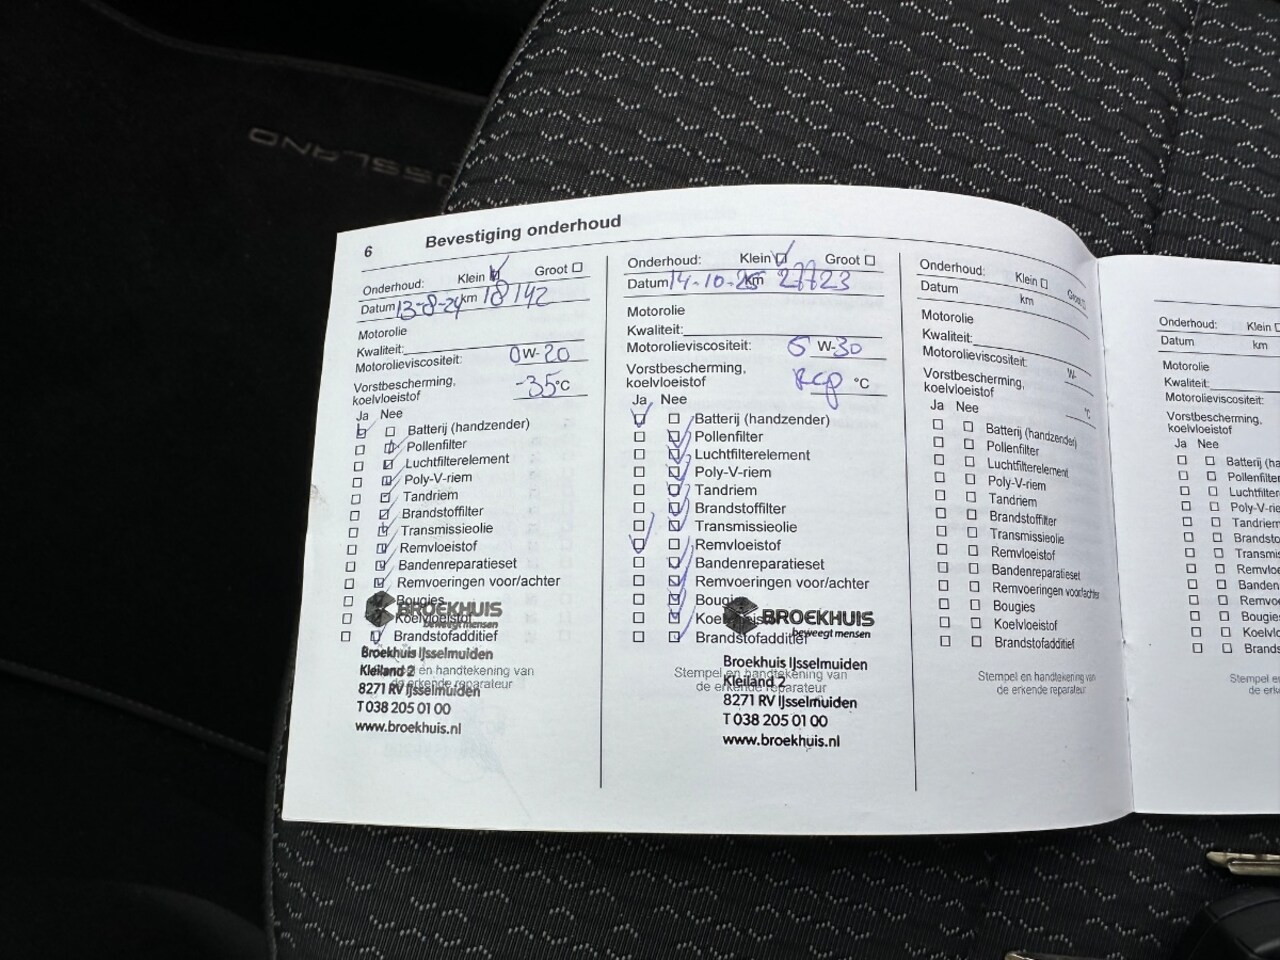 6 Bevestiging onderhoud
Onderhoud: Klein Groot
Datum 13-8-24 km 18142
Motorolie
Kwaliteit:
Motorolieviscositeit: 0W-20
Vorstbescherming,
koelvloeistof -35°C
Ja Nee
Batterij (handzender)
Pollenfilter
Luchtfilterelement
Poly-V-riem
Tandriem
Brandstoffilter
Transmissieolie
Remvloeistof
Bandenreparatieset
Remvoeringen voor/achter
Bougies
Koelvloeistof
Brandstofadditief
BROEKHUIS
beweegt mensen
Broekhuis IJsselmuiden
Kleiland 2
en handtekening van
de erkende reparateur
8271 RV IJsselmuiden
T 038 205 01 00
www.broekhuis.nl
Onderhoud: Klein Groot
Datum 14-10-25 km 27723
Motorolie
Kwaliteit:
Motorolieviscositeit: 5 W-30
Vorstbescherming,
koelvloeistof °C
Ja Nee
Batterij (handzender)
Pollenfilter
Luchtfilterelement
Poly-V-riem
Tandriem
Brandstoffilter
Transmissieolie
Remvloeistof
Bandenreparatieset
Remvoeringen voor/achter
Bougies
Koelvloeistof
Brandstofadditief
BROEKHUIS
beweegt mensen
Broekhuis IJsselmuiden
Stempel en handtekening van
Kleiland 2
de erkende reparateur
8271 RV IJsselmuiden
T 038 205 01 00
www.broekhuis.nl
Onderhoud: Klein Groot
Datum km
Motorolie
Kwaliteit:
Motorolieviscositeit: W-
Vorstbescherming,
koelvloeistof °C
Ja Nee
Batterij (handzender)
Pollenfilter
Luchtfilterelement
Poly-V-riem
Tandriem
Brandstoffilter
Transmissieolie
Remvloeistof
Bandenreparatieset
Remvoeringen voor/achter
Bougies
Koelvloeistof
Brandstofadditief
Stempel en handtekening van
de erkende reparateur
Onderhoud: Klein
Datum km
Motorolie
Kwaliteit:
Motorolieviscositeit:
Vorstbescherming,
koelvloeistof
Ja Nee
Batterij (ha
Pollenfilter
Luchtfilter
Poly-V-rie
Tandriem
Brandsto
Transmis
Remvloe
Banden
Remvo
Bougies
Koelvlo
Brands
Stempel e
de erk